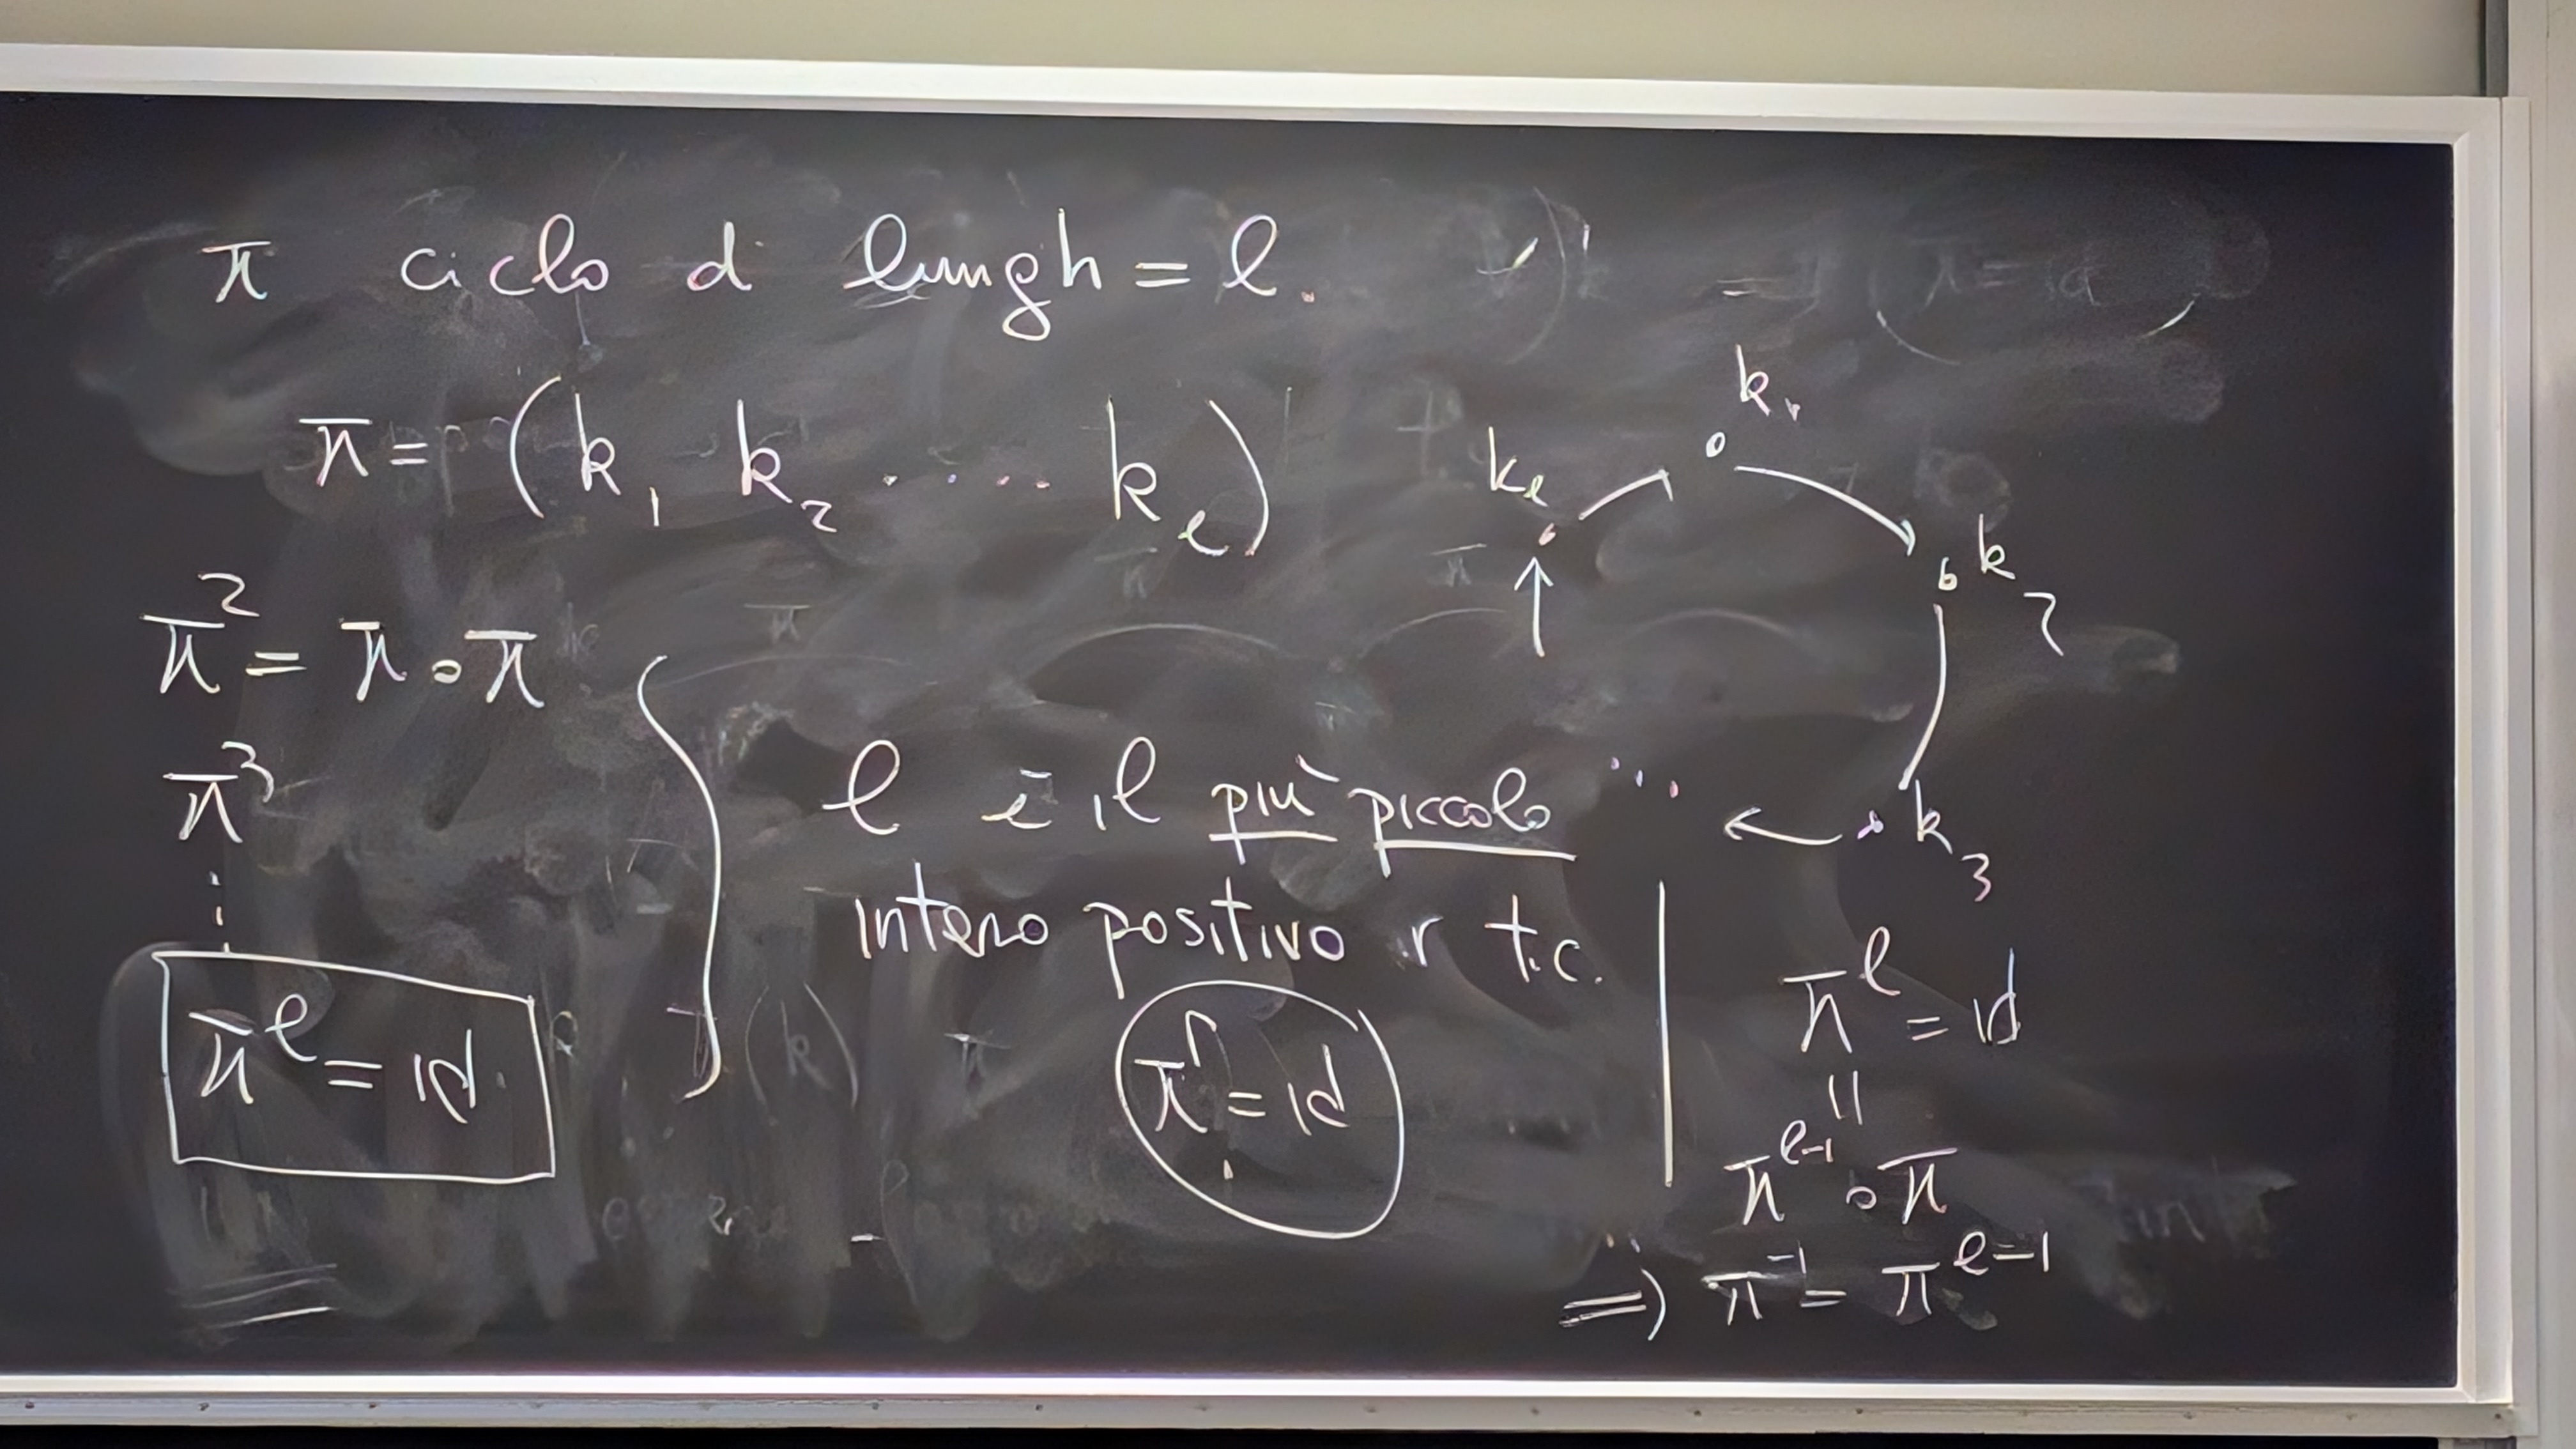 π ciclo d lungh = l.
π = (k₁ k₂ ..... kₗ)
k₁
kₗ
k₂
k₃
...
π² = π ∘ π
π³
⋮
πˡ = id.
l è il più piccolo
intero positivo r t.c.
πʳ = id
πˡ = id
||
πˡ⁻¹ ∘ π
⇒ π⁻¹ = πˡ⁻¹